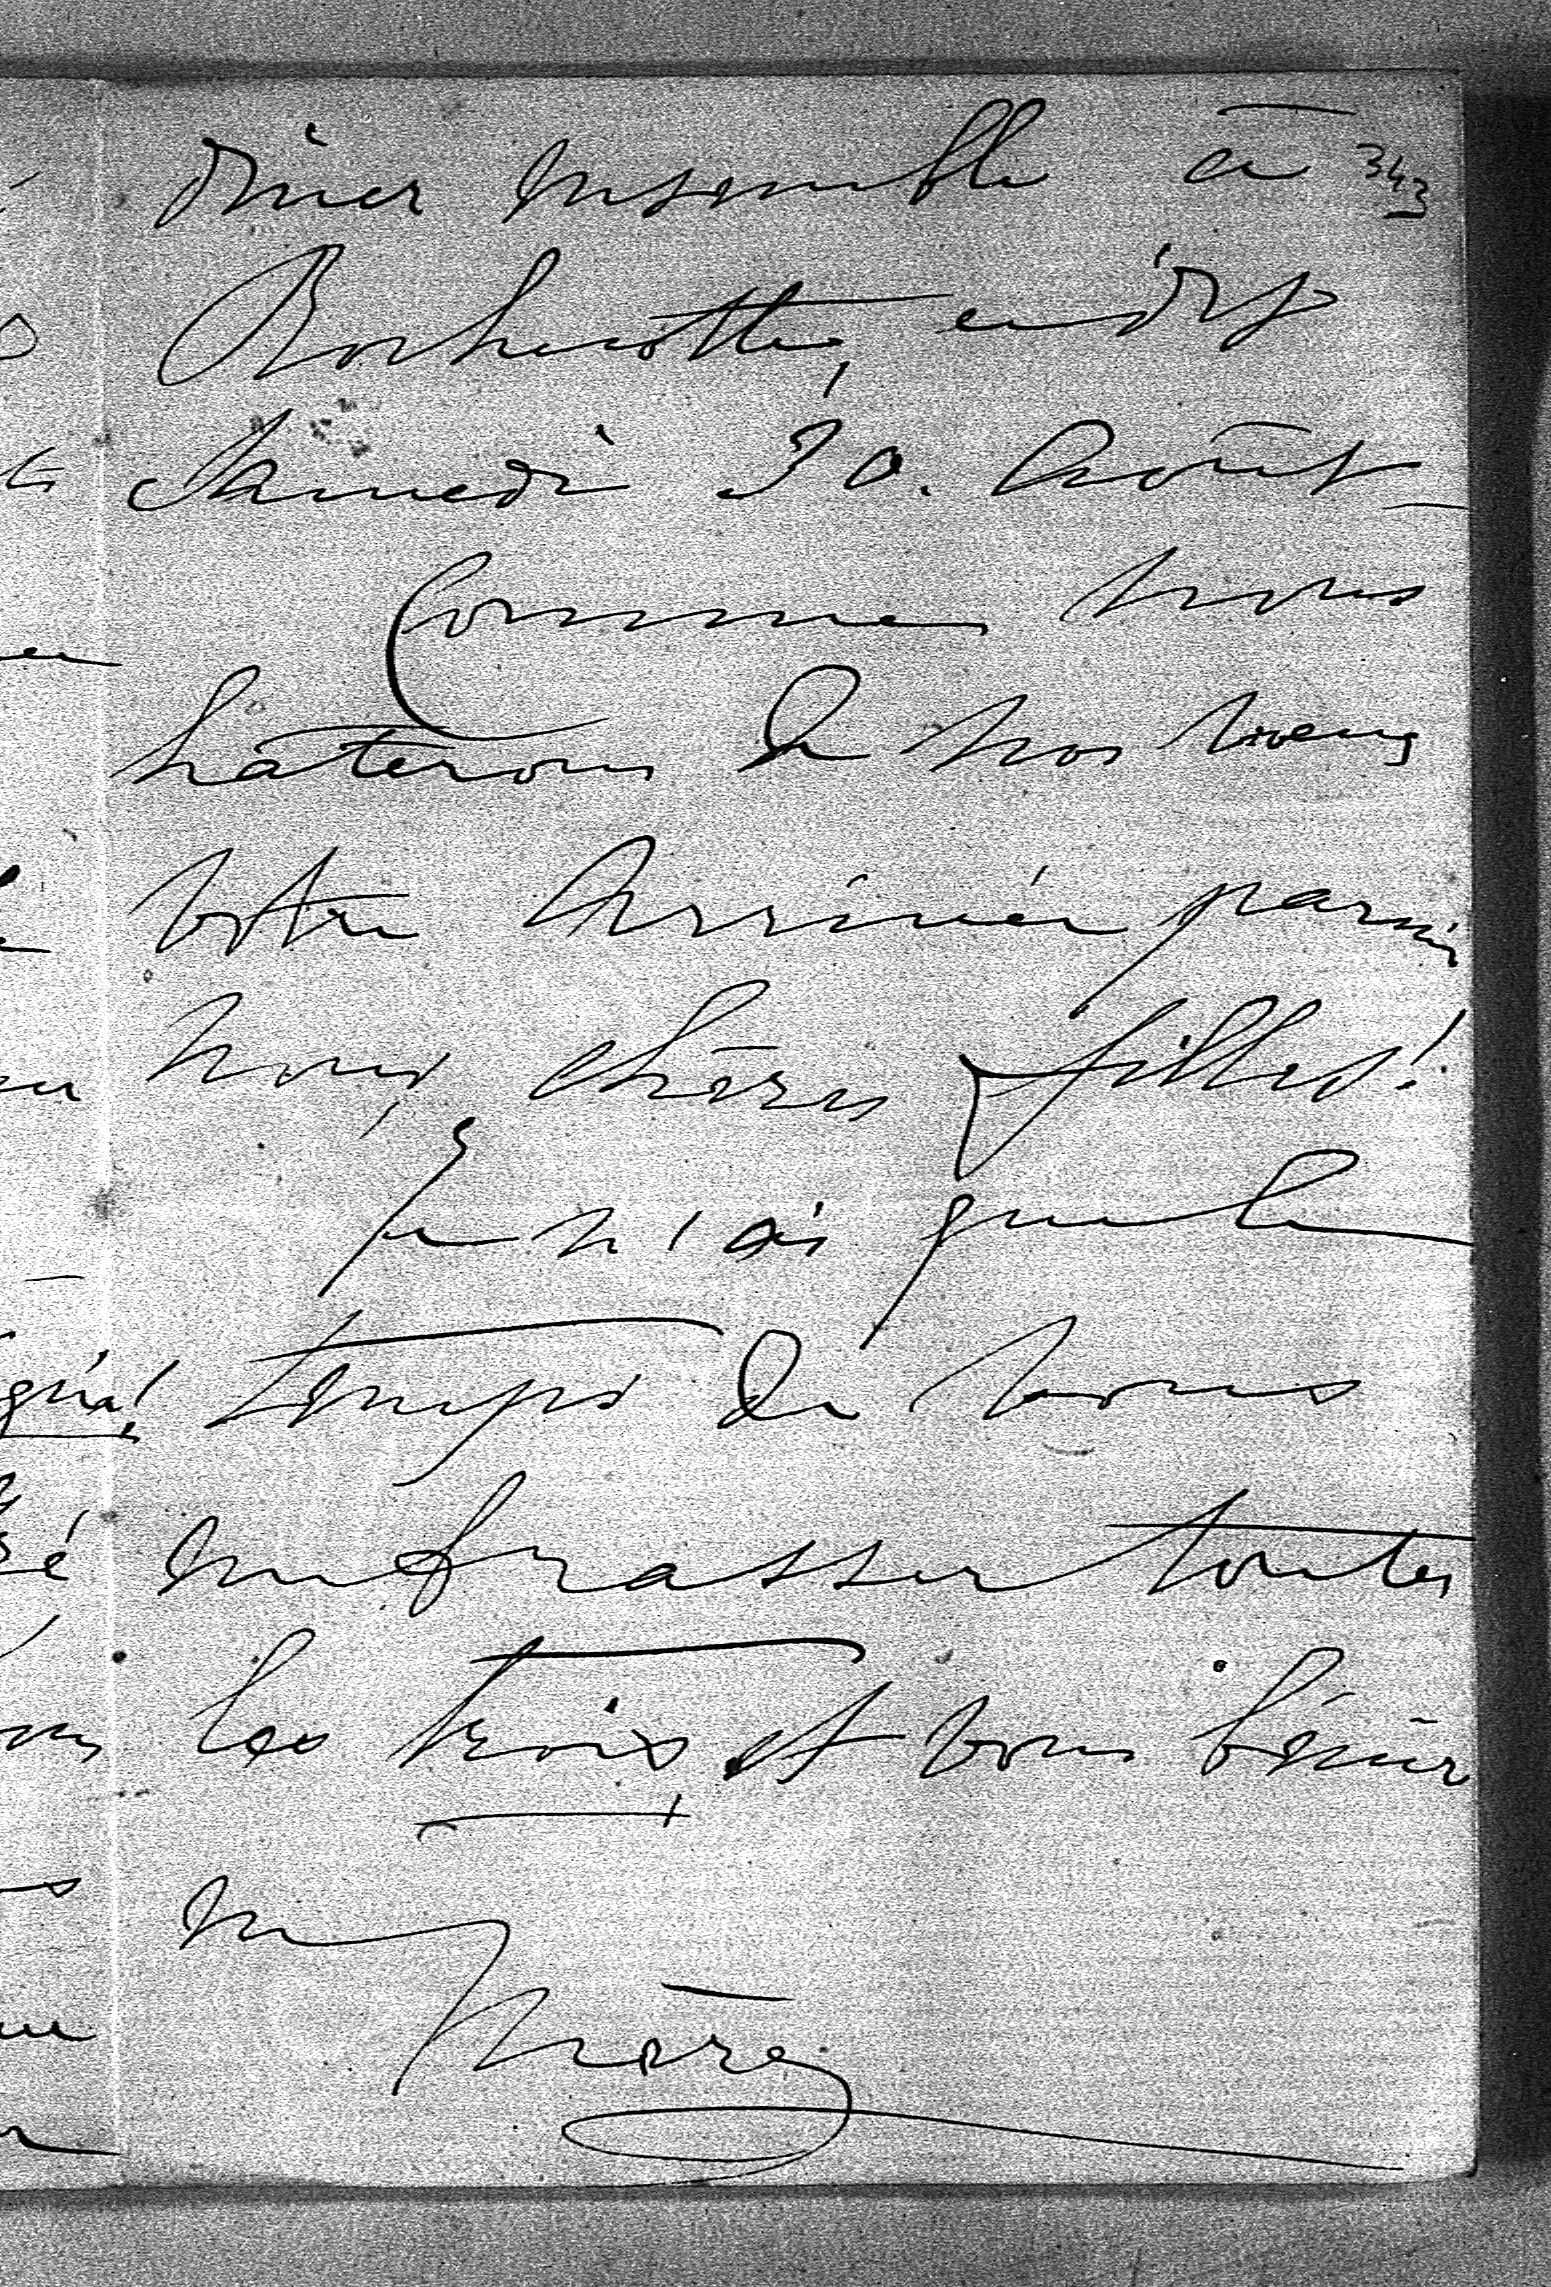 dîner ensemble à 343
Rochecotte,
Samedi 30. Août
Comme nous
hâterons de nos voeux
votre Arrivée parmi
nous, chères filles!
Je n'ai que le
temps de vous
embrasser toutes
les trois, et vous bénir
en
Mère